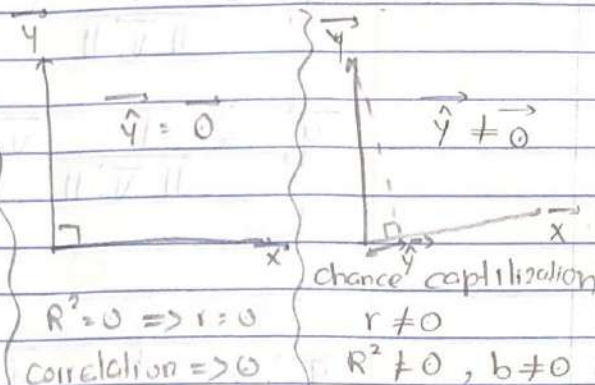 y⃗
ŷ⃗ = 0⃗
x⃗
R² = 0 => r = 0
correlation => 0
y⃗
ŷ⃗ ≠ 0⃗
x⃗
ŷ⃗
chance captilization
r ≠ 0
R² ≠ 0 , b ≠ 0